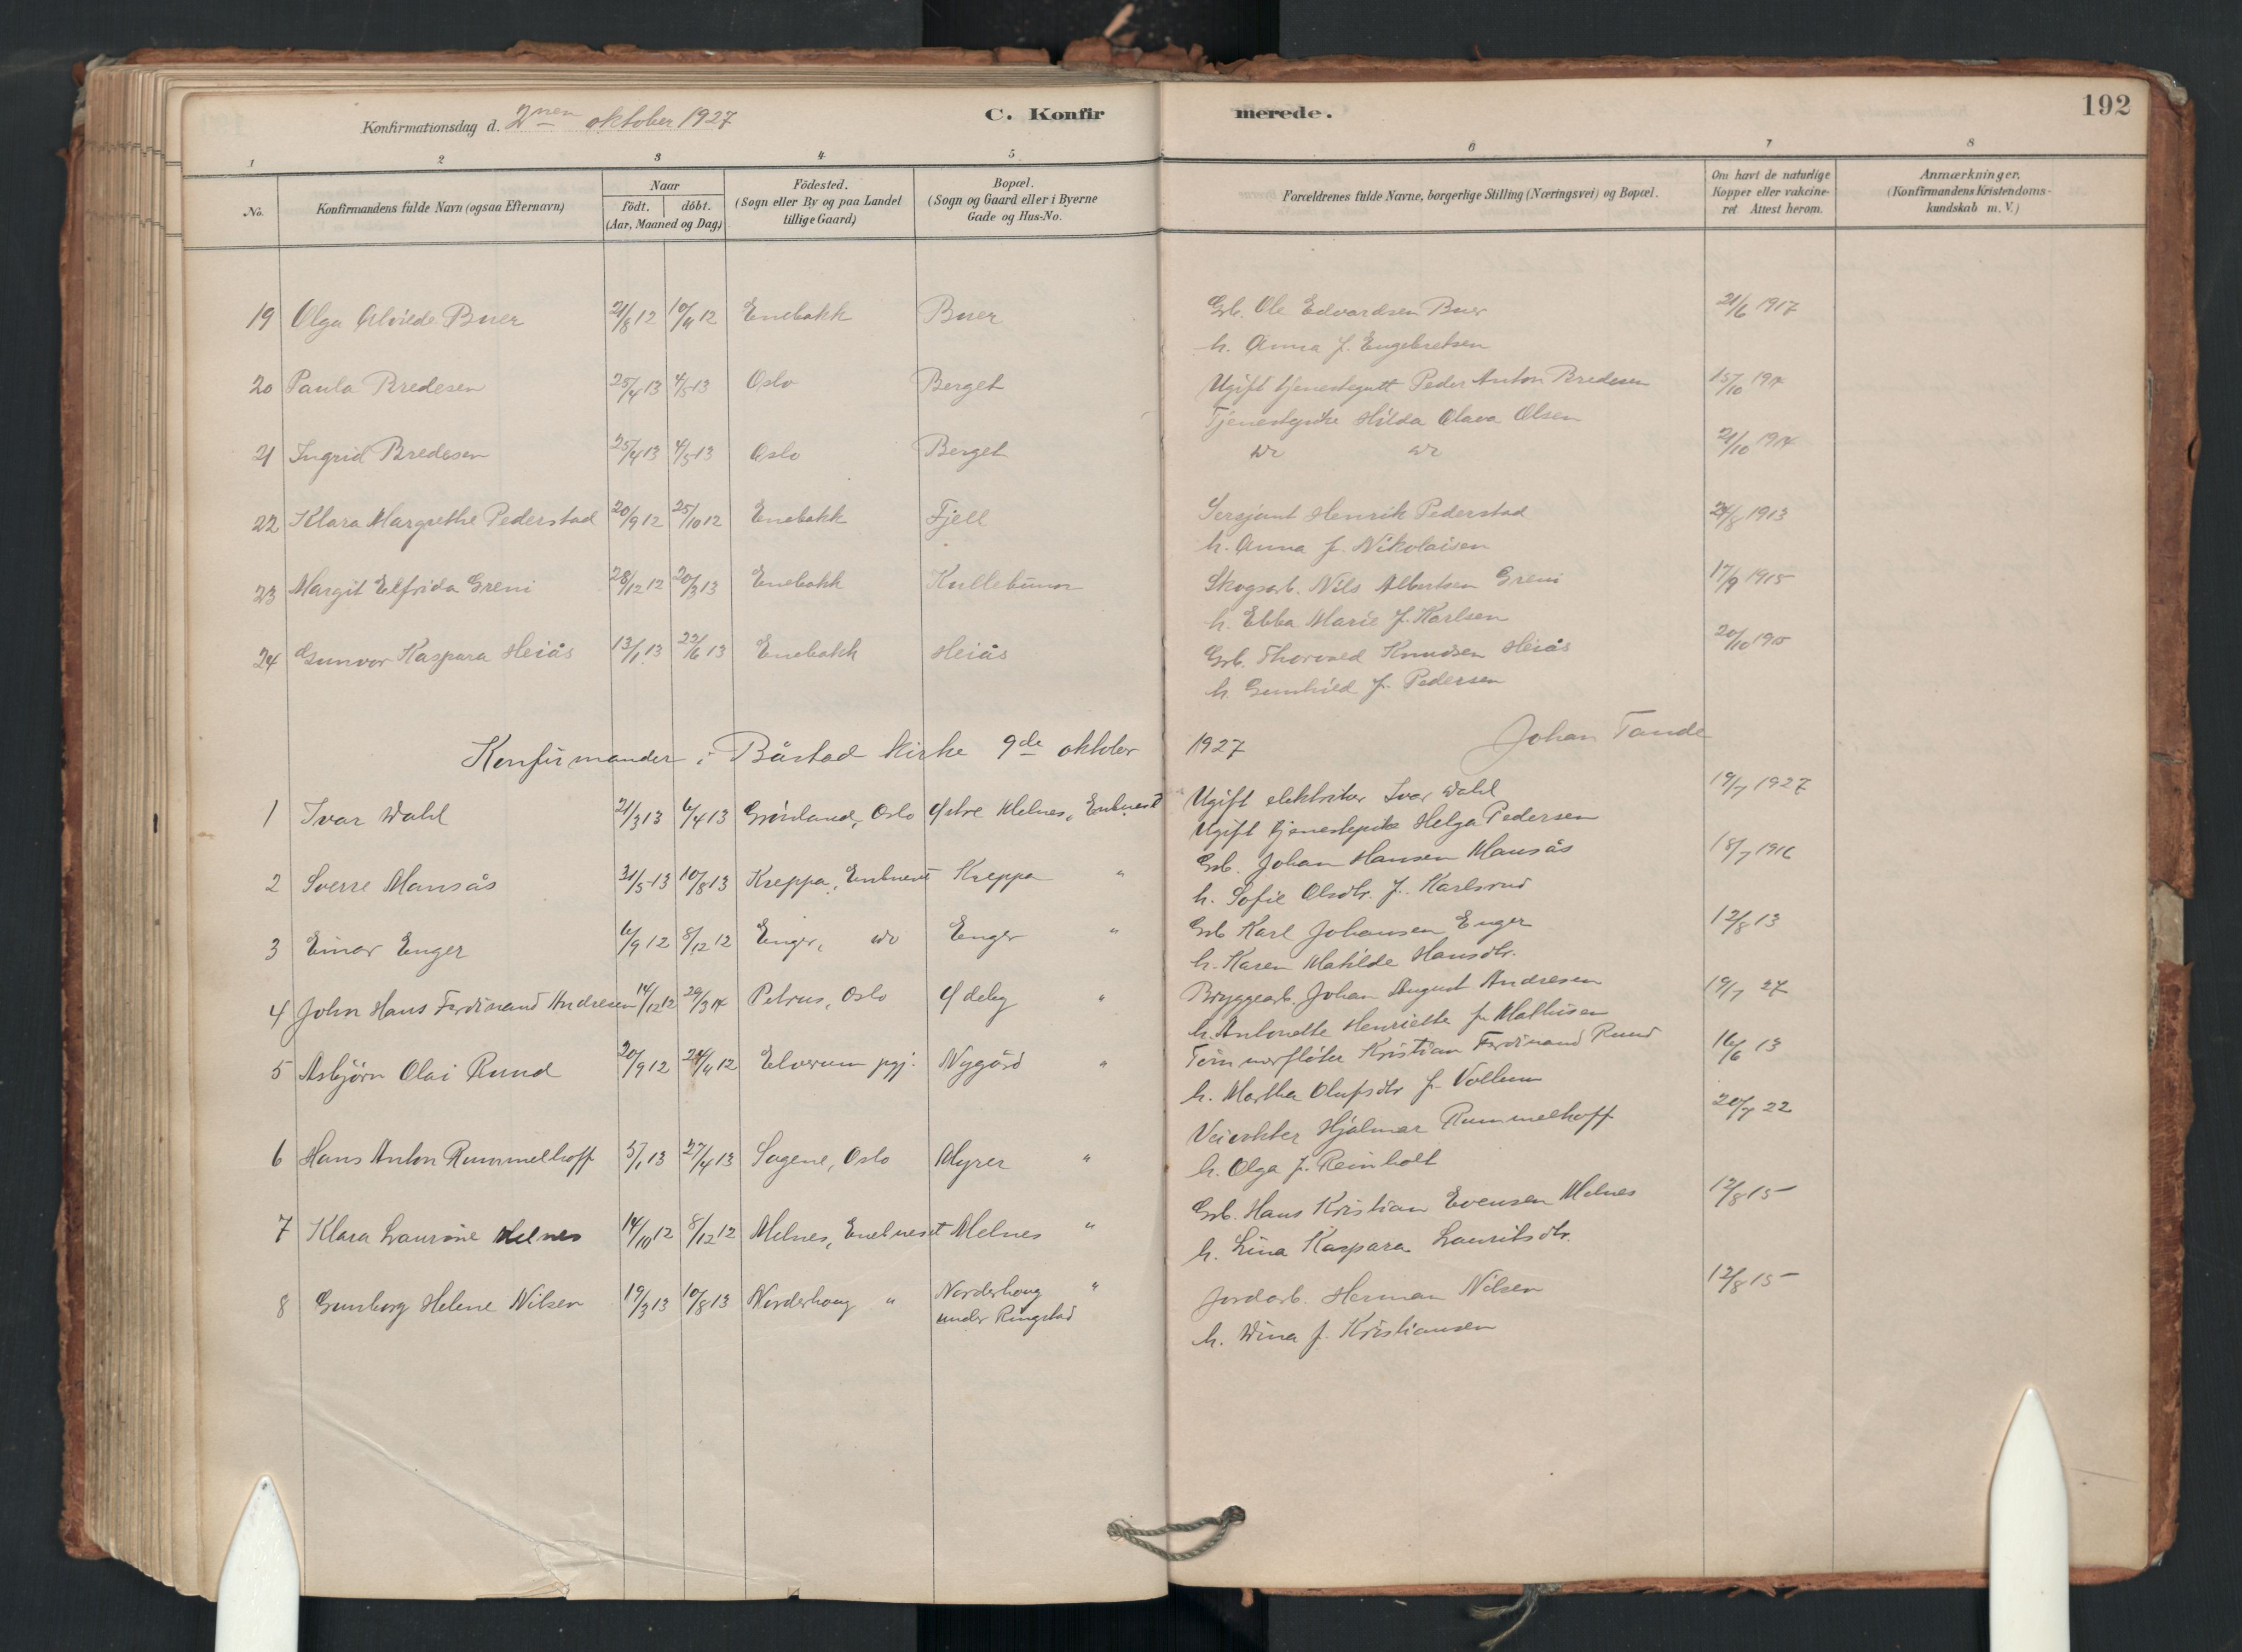 192
Konfirmationsdag d. 2nen oktober 1927
C. Konfirmerede.
1 2 3 4 5 6 7 8
No.
Konfirmandens fulde Navn (ogsaa Efternavn)
Naar
födt. döbt.
(Aar, Maaned og Dag)
Födested.
(Sogn eller By og paa Landet
tillige Gaard)
Bopæl.
(Sogn og Gaard eller i Byerne
Gade og Hus-No.
Forældrenes fulde Navne, borgerlige Stilling (Næringsvei) og Bopæl.
Om havt de naturlige
Kopper eller vakcine-
ret. Attest herom.
Anmærkninger.
(Konfirmandens Kristendoms-
kundskab m. V.)
19 Olga Alvilde Buer 21/8 12 10/11 12 Enebakk Buer Grb. Ole Edvardsen Buer 21/6 1917
h. Anna f. Engebretsen
20 Paula Bredesen 25/4 13 4/5 13 Oslo Berget Ugift tjenestegutt Peder Anton Bredesen 15/10
Tjenestepike Hilda Olava Olsen
21 Ingrid Bredesen 25/4 13 4/5 13 Oslo Berget do do 21/10 1914
22 Klara Margrethe Pederstad 20/9 12 25/10 12 Enebakk Fjell Sersjant Henrik Pederstad 24/8 1913
h. Anna f. Nikolaisen
23 Margit Elfrida Greni 28/12 12 20/3 13 Enebakk Kullebunn Skogsarb. Nils Albertsen Greni 17/9 1915
h. Ebba Marie f. Karlsen
24 Gunvor Kaspara Heiås 13/1 13 22/6 13 Enebakk Heiås Grb. Thorvald Knudsen Heiås 20/10
h. Gunhild f. Pedersen
Johan Tande
Konfirmander i Båstad kirke 9de oktober 1927
1 Ivar Dahl 21/3 13 6/4 13 Grönland, Oslo Östre Melnes, Ugift elektriker Ivar Dahl 19/7 1927
Ugift tjenestepike Helga Pedersen
2 Sverre Mansås 31/5 13 10/8 13 Kreppa, Enebneset Kreppa " Grb. Johan Hansen Mansås 18/7 1916
h. Sofie Olsdtr. f. Karlsrud
3 Einar Enger 6/9 12 8/12 12 Enger, do Enger " Grb Karl Johansen Enger 12/8 13
h. Karen Matilde Hansdtr.
4 John Hans Ferdinand Andresen 14/12 12 29/3 14 Petrus, Oslo Ödeby " Bryggearb. Johan August Andresen 19/7 27
h. Antonette Henriette f. Mathisen
5 Asbjörn Olai Rund 20/9 12 24/11 12 Elverum pgj. Nygård " Tömmerflöter Kristian Ferdinand Rund 16/6 13
h. Martha Olufsdtr f. Vollum
6 Hans Anton Rummelhoff 5/1 13 27/4 13 Sagene, Oslo Myrer " Veivokter Hjalmar Rummelhoff 20/7 22
h. Olga f. Reinholt
7 Klara Laurine Melnes 14/10 12 8/12 12 Melnes, Enebneset Melnes " Grb. Hans Kristian Evensen Melnes 12/8 15
h. Lina Kaspara Lauritsdtr.
8 Gunborg Helene Nilsen 19/3 13 10/8 13 Norderhoug " Norderhoug " Jordarb. Herman Nilsen 12/8 15
under Ringstad
h. Dina f. Kristiansen